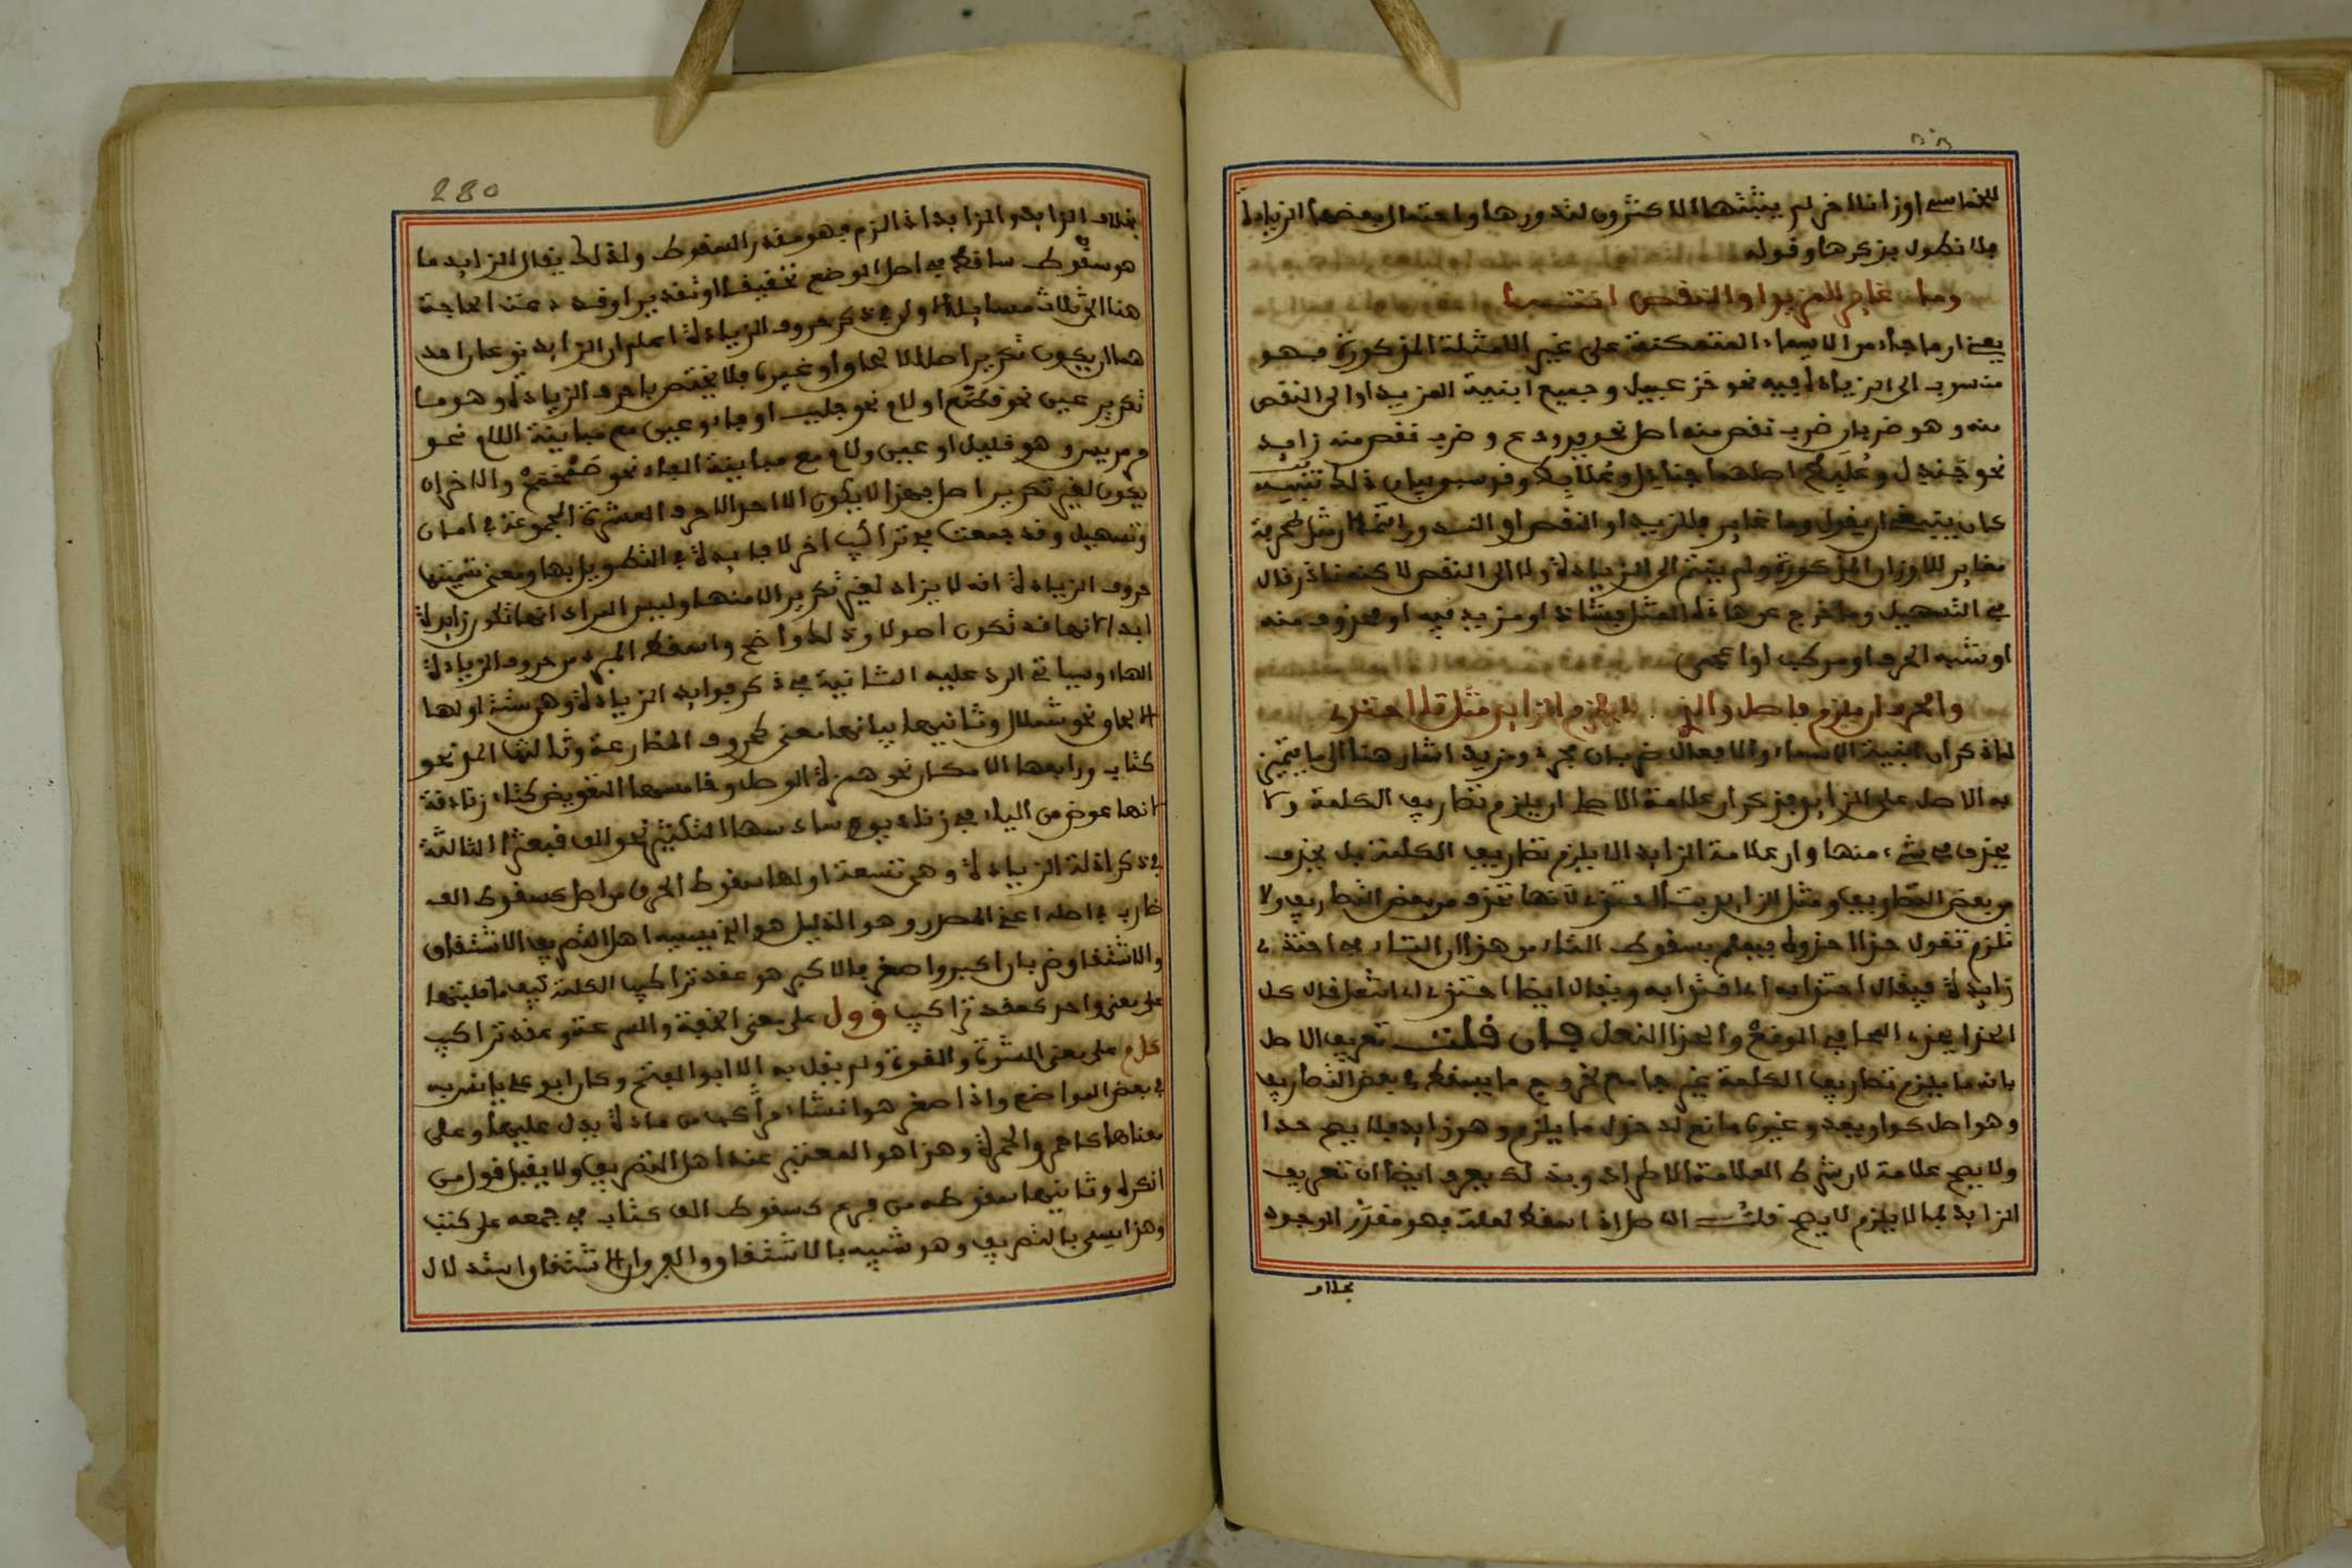 للخماسي اوزانا اخر لم يثبتها الاكثرون لندورها واحتمال بعضها الزيادة
فلا نطول بذكرها وقوله
وما غاير للمزيد او النقص انتسبا
يعني ان ما جاء من الاسماء المتمكنة على غير الامثلة المذكورة فهو
منسوب الى الزيادة فيه نحو خزعبيل وجميع ابنية المزيد او الى النقص
منه وهو ضربان ضرب نقص منه اصل نحو يد ودم وضرب نقص منه زايد
نحو جندل وعلبط اصلهما جنادل وعلابط وقد سبق بيان ذلك تنبيه
كان ينبغي ان يقول وما غاير للمزيد او النقص او الندور
مغاير للاوزان المذكورة ولم ينتم الى الزيادة ولا الى النقص لاكنه نادر قال
في التسهيل وما خرج عن هذه المثل فشاذ او مزيد فيه او محذوف منه
او شبه الحرف او مركب او اعجمي
والحرف ان يلزم فاصل والذي لا يلزم الزايد مثل تا احتذي
لما ذكر ان ابنية الاسماء والافعال ضربان مجرد ومزيد اشار هنا الى ما يتميز
به الاصل على الزايد فذكر ان علامة الاصل ان يلزم تصاريف الكلمة ولا
يحذف في شيء منها وان علامة الزايد الا يلزم تصاريف الكلمة بل يحذف
من بعض التصاريف ومثل الزايد بتاء احتذي لانها تحذف من بعض التصاريف ولا
تلزم تقول حذا حذوه فيعلم بسقوط التاء من هذا ان التاء في احتذي
زايدة فيقال احتذا به اي اقتدا به ويقال ايضا احتذي اي انتعل قال كل
الحذا يحتذي الحافي الوقع والحذا النعل فان قلت تعريف الاصل
بانه ما يلزم تصاريف الكلمة غير جامع لخروج ما يسقط في بعض التصاريف
وهو اصل كواو يعد وغير مانع لدخول ما يلزم وهو زايد فلا يصح حدا
ولا يصح علامة لان شرط العلامة الاطراد وبذلك يعرف ايضا ان تعريف
الزايد بما لا يلزم لا يصح قلت الاصل اذا سقط لعلة فهو مقدر الوجود
بخلاف
280
بخلاف الزايد والزايد اذا لزم فهو مقدر السقوط ولذلك يقال الزايد ما
هو سقوط ساقط في اصل الوضع تحقيقا او تقديرا وقد دعت الحاجة
هنا الى ثلاث مسايل الاولى في ذكر حروف الزيادة اعلم ان الزايد نوعان احد
هما ان يكون تكرير اصل لالحاق او غيره فلا يختص باحرف الزيادة وهو ما
تكرير عين نحو قطع او لام نحو جلبب او فاء وعين مع مباينة اللام نحو
مرمريس وهو قليل او عين ولام مع مباينة الفاء نحو صمحمح والاخر ان
يكون لغير تكرير اصل فهذا لا يكون الا احد الاحرف العشرة المجموعة في امان
وتسهيل وقد جمعت في تراكيب اخر لا فايدة في التطويل بها ومعنى تسميتها
حروف الزيادة انه لا يزاد لغير تكرير الا منها وليس المراد انها تكون زايدة
ابدا لانها قد تكون اصولا وذلك واضح واسقط المبرد من حروف الزيادة
الهاء وسياتي الرد عليه الثانية في ذكر فوايد الزيادة وهي ستة اولها
الالحاق نحو شملال وثانيها بيانها معنى كحروف المضارعة وثالثها المد نحو
كتاب ورابعها الامكان نحو همزة الوصل وخامسها التعويض كتاء زنادقة
لانها عوض من الياء في زناديق وسادسها التكثير نحو الف قبعثرا الثالثة
في ذكر ادلة الزيادة وهي تسعة اولها سقوط الحرف من اصل كسقوط الف
ضارب في اصله اعني المصدر وهو الدليل هو الذي يسميه اهل التصريف الاشتقاق
والاشتقاق ضربان اكبر واصغر فالاكبر هو عقد تراكيب الكلمة كيف ما قلبتها
على معنى واحد كعقد تراكيب قول على معنى الخفة والسرعة وعقد تراكيب
كلم على معنى الشدة والقوة ولم يقل به الا ابو الفتح وكان ابو علي يانس به
في بعض المواضع والاصغر هو انشاء مركب من مادة يدل عليها وعلى
معناها كاحمر والحمرة وهذا هو المعتبر عند اهل التصريف ولا يقبل قول من
انكره وثانيها سقوطه من فرع كسقوط الف كتاب في جمعه على كتب
وهذا يسمى بالتصريف وهو شبيه بالاشتقاق والفرق ان الاشتقاق استدلال